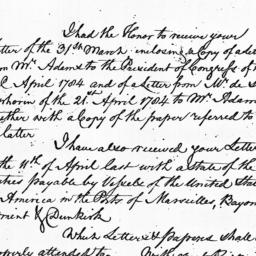 I had the Honor to receive your
etter of the 31st March inclosing a Copy of a Let
om Mr. Adams to the President of Congress of
April 1784 and of a Letter from Mr. de
horn of the 21st April 1784 to Mr Adam
ether with a Copy of the paper referred to
latter
I have also received your Letter
the 11th of April last with a state of the
ties payable by Vessels of the United Stat
America in the Ports of Marseilles, Bayon
orient & Dunkirk
Which Letters & Papers shall
operly attended to